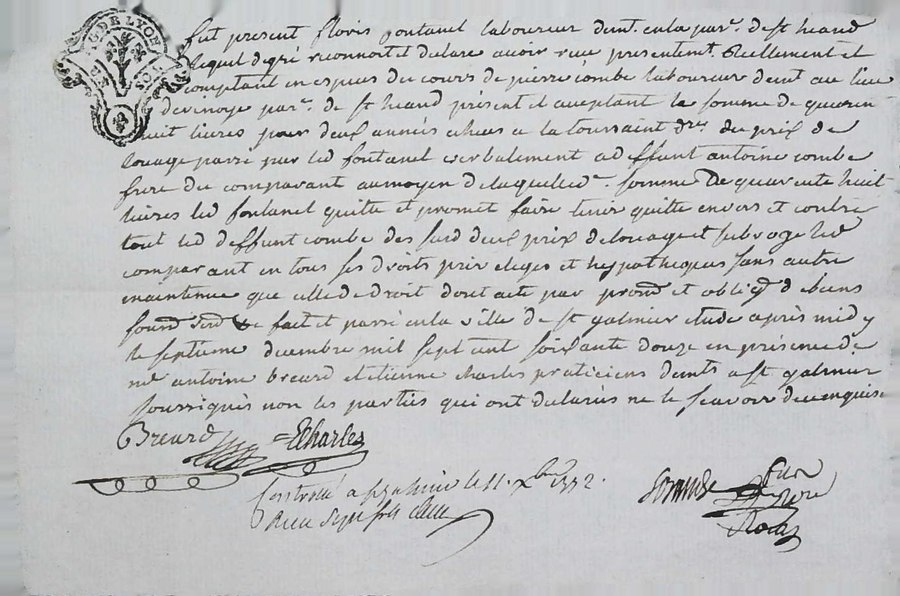 G. DE LYON
fut present floris fontanel laboureur demt. en la parr. de st heand
lequel de gré reconnoit et declare avoir reçu presentemt. Reellement et
comptant en especes du cours de pierre combe laboureur demt au lieu
de parr. de st heand présent et acceptant la somme de quarante
huit livres pour deux années echues a la toussaint dre. du prix de
louage passé par led fontanel verbalement a deffunt antoine combe
frere du comparant au moyen de laquelle de. somme De quarente huit
livres led fontanel quitte et promet faire tenir quitte envers et contre
tout led deffunt combe des susd deux prix de louage et subroge led
comparant en tous ses droits privileges et hypotheques sans autre
maintenue que celle de droit dont acte par prom et oblig de biens
fait et passé en la ville de st galmier etude après midy
le septieme decembre mil sept cent soixante douze en présence de
me antoine Breard et etienne charles praticiens demts a st galmier
soussignés non les parties qui ont declarés ne le scavoir de ce enquis
Breard Charles
Controllé a st galmier le 11. xbre 1772.
Recu sept sols